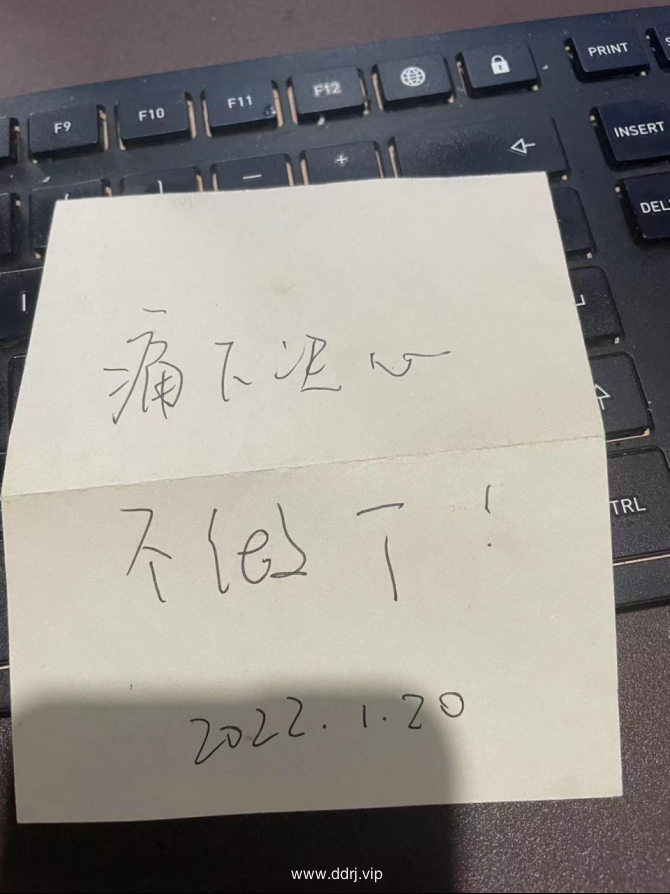 F9 F10 F11 F12 PRINT
INSERT
DEL
TRL
痛下决心
不做了！
2022.1.20
www.ddrj.vip